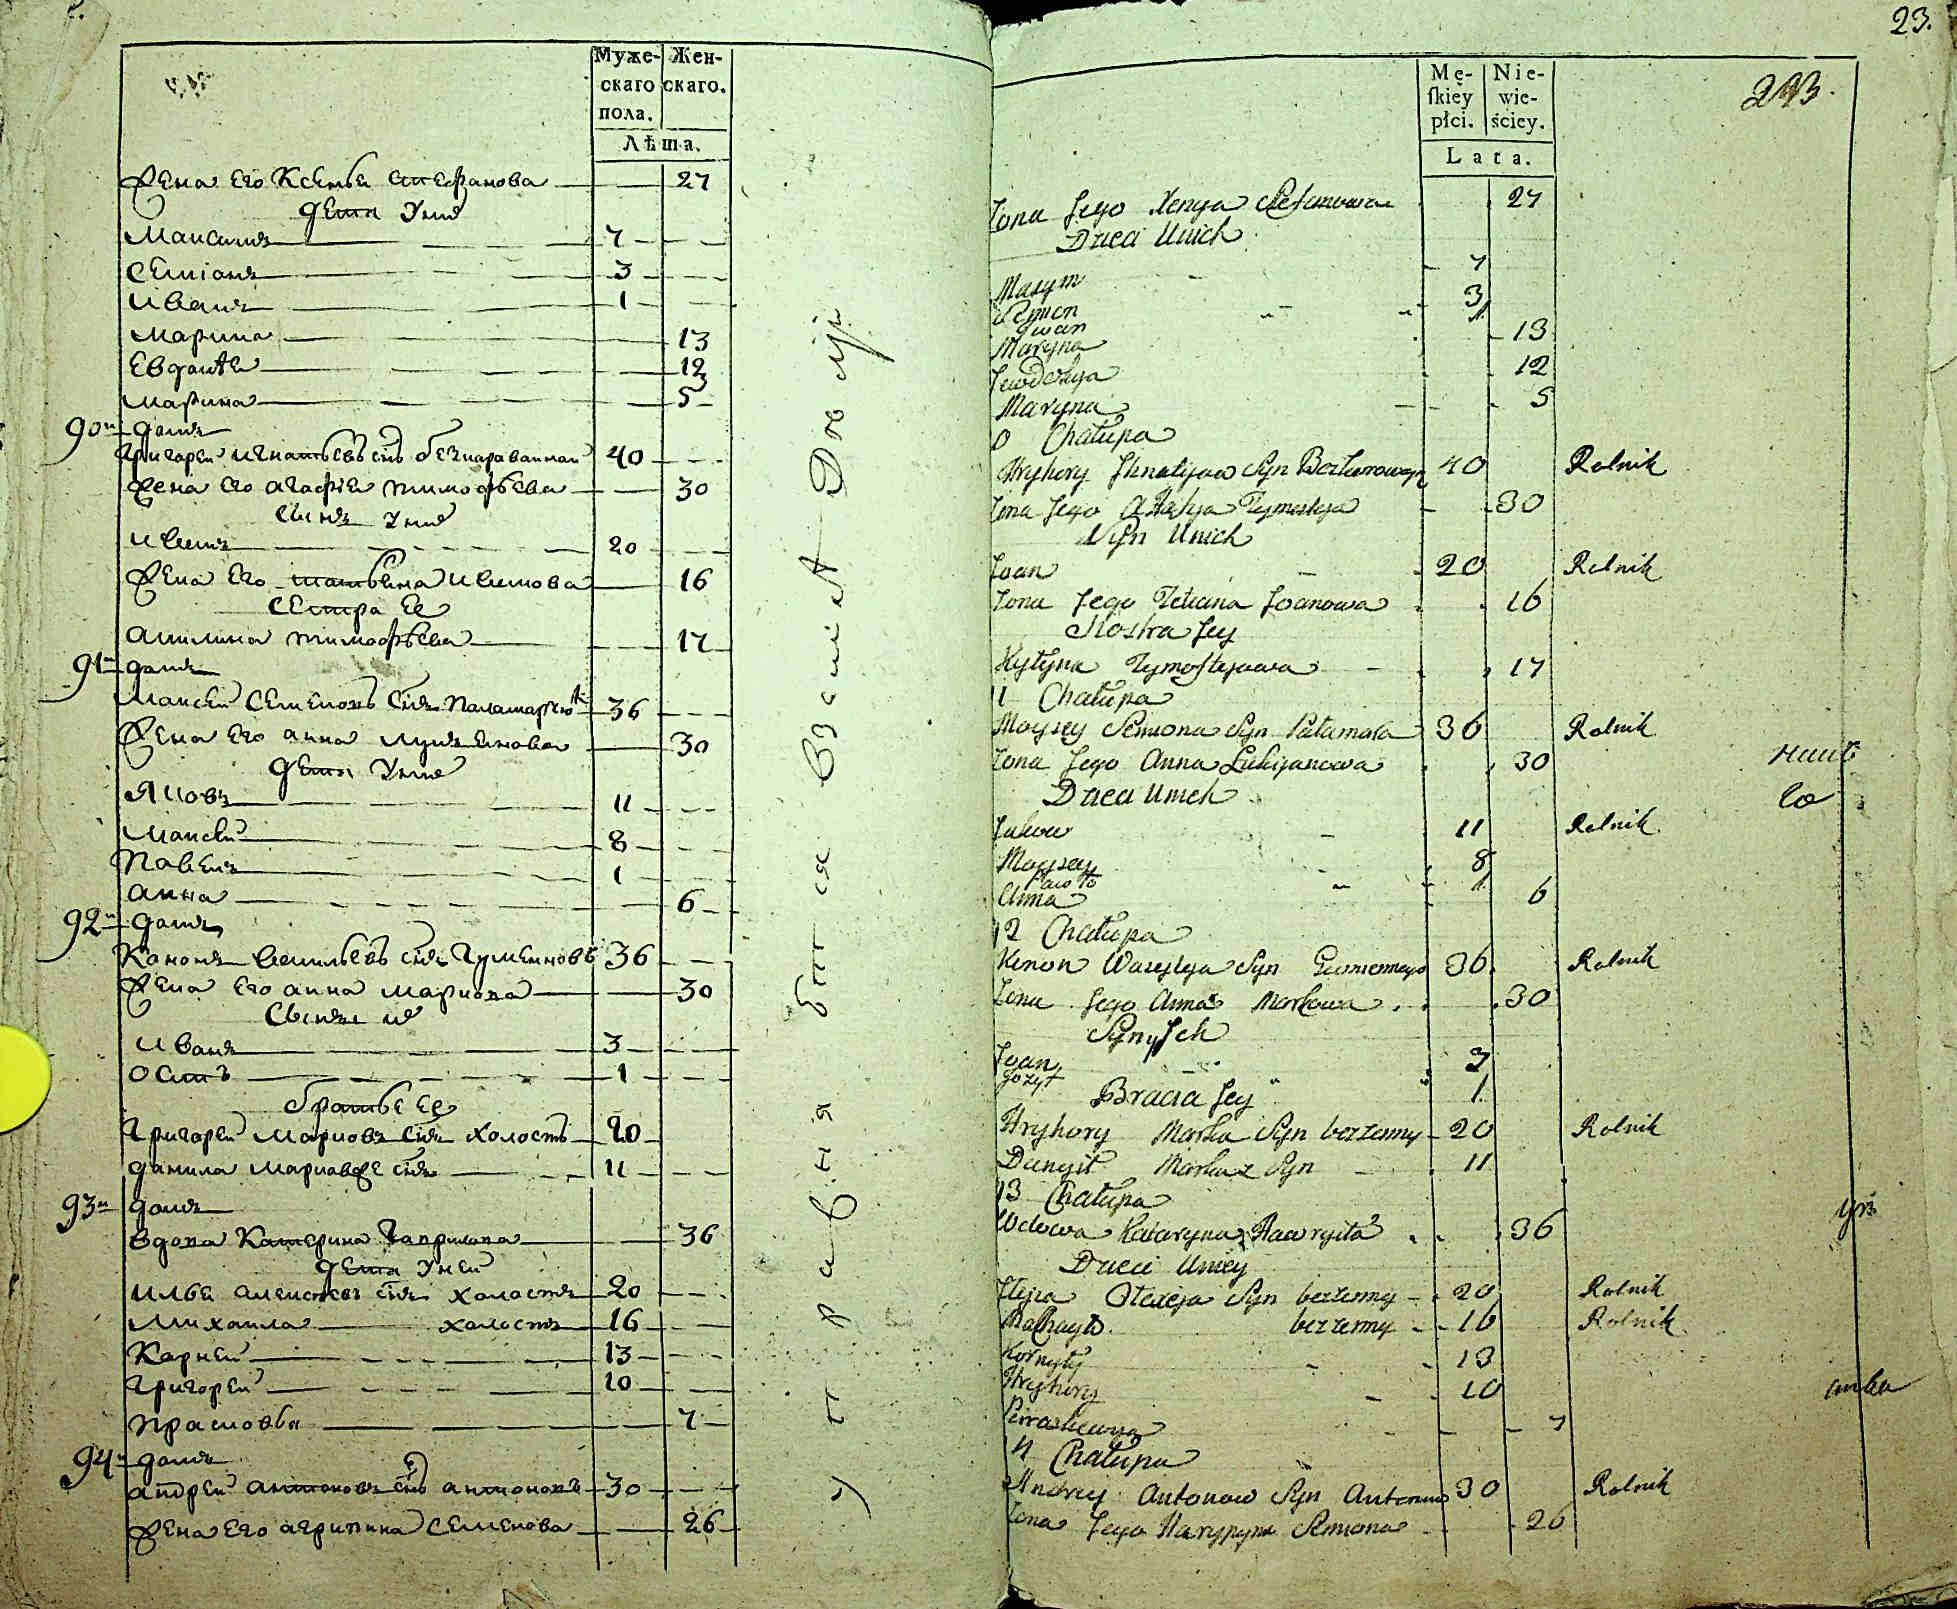 Муже-
скаго
пола.
Жен-
скаго.
Лѣта.
Жена его Ксенья Стефанова 27
дети у них
Максимъ 7
Семионъ 3
Иванъ 1
Марина 13
Евдокѣя 12
Марина 5
90й домъ
Григорей Игнатьевъ снъ 40
Жена его Агафия Тимофѣева 30
Сынъ у них
Иванъ 20
Жена его Татьяна Иванова 16
Сестра ее
Акилина Тимофѣева 17
91й домъ
Моисей Семеновъ снъ 36
Жена его Анна Лукъянова 30
дети у них
Яковъ 11
Моисей 8
Павелъ 1
Анна 6
92й домъ
Кононъ Васильевъ снъ Гуменновъ 36
Жена его Анна Маркова 30
Сыны их
Иванъ 3
Осипъ 1
братья ее
Григорей Марковъ снъ холостъ 20
Данила Марковже снъ 11
93й домъ
Вдова Катерина Гаврилова 36
дети у ней
Илья Алексѣевъ снъ холостъ 20
Михайла холостъ 16
Карней 13
Григорей 10
Прасковья 7
94й домъ
Андрей Антоновъ снъ Антоновъ 30
Жена его Агрипина Семенова 26
23.
Mę-
ſkiey
płci.
Nie-
wie-
ściey.
Lata.
Zona Jego Xenya Stefanowa 27
Dzieci Unich
Maxym 7
Semen 3
Iwan 1
Maryna 13
Jewdokya 12
Maryna 5
0 Chałupa
Hryhory Ihnatijow Syn 40 Rolnik
Zona Jego Tymofieja 30
Syn Unich
Joan 20 Rolnik
Zona Jego Tetiana Joanowa 16
Siostra Jey
Tymofiejowa 17
1 Chałupa
Moysey Semiona Syn Pałamara 36 Rolnik
Zona Jego Anna Łukijanowa 30
Dzieci Unich
Jakow 11 Rolnik
Moysey 8
Pawło 1
Anna 6
92 Chałupa
Konon Wasylya Syn 36 Rolnik
Zona Jego Anna Markowa 30
Syny Jch
Joan 3
Jozyf 1
Bracia Jey
Hryhory Marka Syn bezzenny 20 Rolnik
Danyił Markaz Syn 11
93 Chałupa
Wdowa Kataryna Hawryiła 36
Dzieci Uniey
Ilyia Syn bezzenny 20 Rolnik
Michayło bezzenny 16 Rolnik
Kornyły 13
Hryhory 10
Paraskewya 7
4 Chałupa
Andrey Antonow Syn Antonow 30 Rolnik
Zona Jego Harypyna Semiona 26